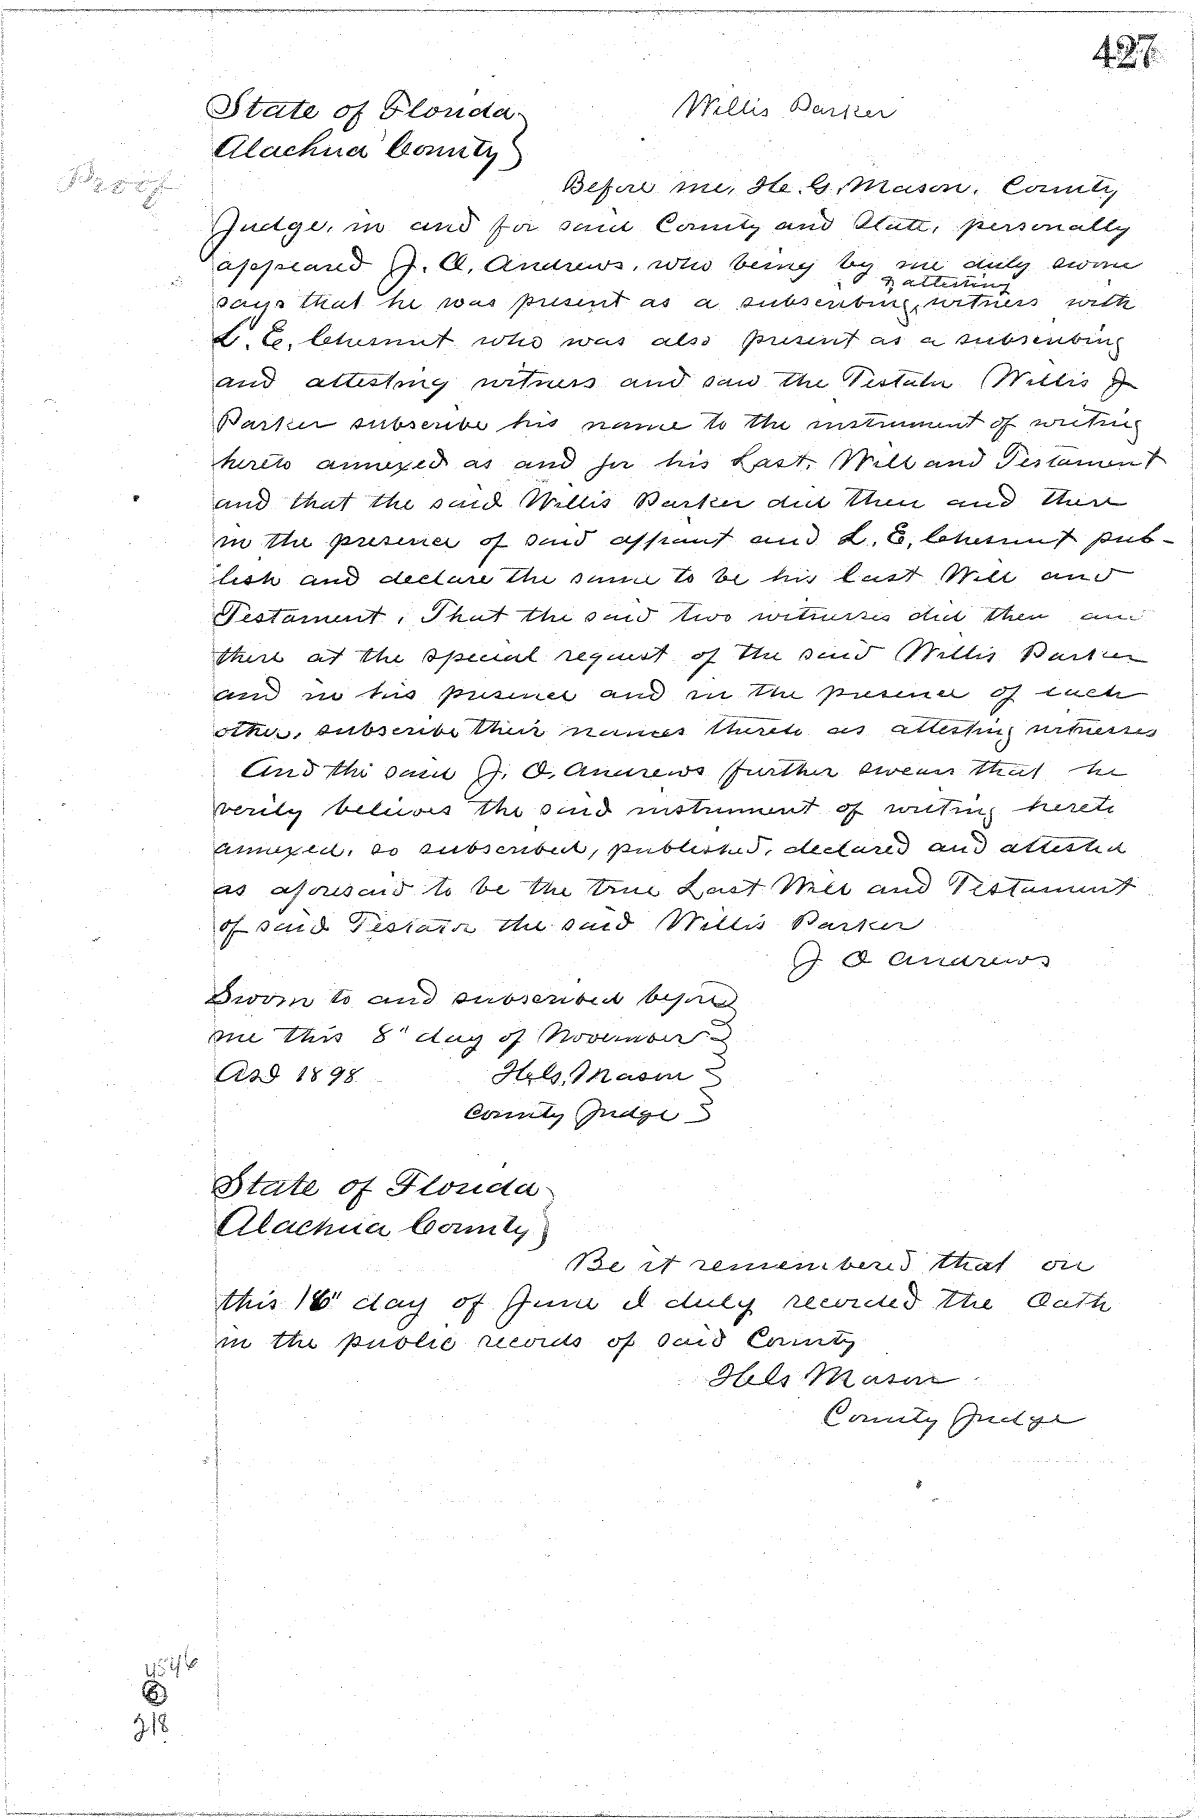 427
State of Florida }
Alachua County }
Willis Parker
Proof
Before me, H. G. Mason, County
Judge, in and for said County and State, personally
appeared J. O. Andrews, who being by me duly sworn
& attesting
says that he was present as a subscribing, witness with
L. E. Chesnut who was also present as a subscribing
and attesting witness and saw the Testator Willis J
Parker subscribe his name to the instrument of writing
hereto annexed as and for his Last, Will and Testament
and that the said Willis Parker did then and there
in the presence of said affiant and L. E. Chesnut pub-
lish and declare the same to be his last Will and
Testament, That the said two witnesses did then and
there at the special request of the said Willis Parker
and in his presence and in the presence of each
other, subscribe their names thereto as attesting witnesses
And the said J. O. Andrews further swears that he
verily believes the said instrument of writing hereto
annexed, so subscribed, published, declared and attested
as aforesaid to be the true Last Will and Testament
of said Testator the said Willis Parker
J O Andrews
Sworn to and subscribed before }
me this 8" day of November }
AsD 1898 Mason }
County Judge }
State of Florida }
Alachua County }
Be it remembered that on
this day of June I duly recorded the Oath
in the public records of said County
Mason
County Judge
4546
6
318